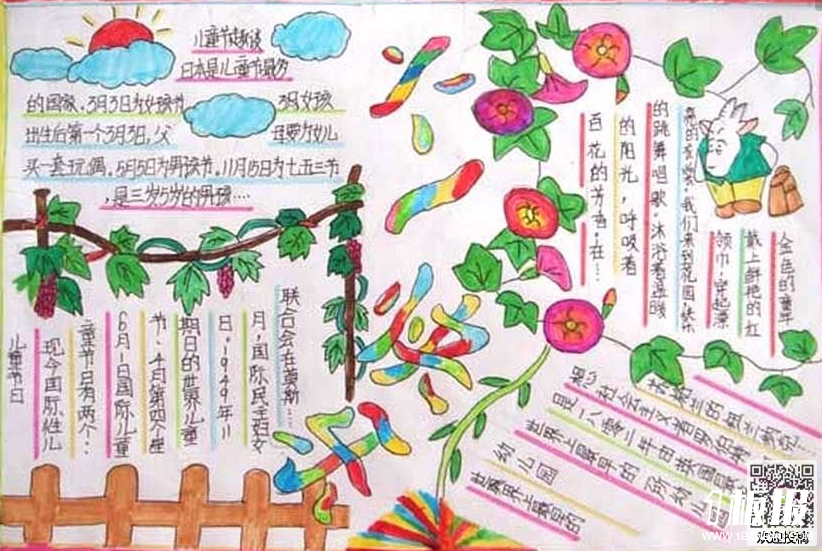 儿童节趣谈
日本是儿童节最多
的国家,3月3日为女孩节 3月女孩
出生后第一个3月3日,父 母要为女儿
买一套玩偶。5月5日为男孩节。11月15日为七五三节
,是三岁5岁的男孩…
金色的童年
戴上鲜艳的红
领巾,穿起漂
亮的衣裳,我们来到花园,快乐
的跳舞唱歌。沐浴着温暖
的阳光,呼吸着
百花的芳香。在…
快乐
儿童节日
现今国际性儿
童节日有两个:
6月1日国际儿童
节、4月第四个星
期日的世界儿童
日。1949年11
月,国际民主妇女
联合会在莫斯…
世界上最早的
幼儿园
世界上最早的一所幼儿
是一八零二年由英国
想心社会主义者罗伯
苏格兰的纽兰纳克…
板报
欢迎投稿